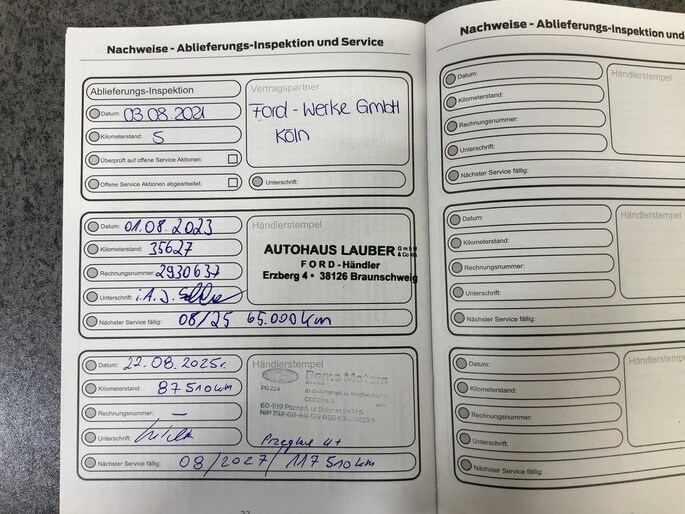 Nachweise - Ablieferungs-Inspektion und Service
Ablieferungs-Inspektion
Datum: 03.08.2021
Kilometerstand: 5
Überprüft auf offene Service Aktionen:
Offene Service Aktionen abgearbeitet:
Vertragspartner
Ford-Werke GmbH
Köln
Unterschrift:
Datum: 01.08.2023
Kilometerstand: 35627
Rechnungsnummer: 2930637
Unterschrift: i.A.
Händlerstempel
AUTOHAUS LAUBER GmbH & Co KG
FORD-Händler
Erzberg 4 • 38126 Braunschweig
Nächster Service fällig: 08/25 65.000 km
Datum: 22.08.2025r.
Kilometerstand: 87510 km
Rechnungsnummer: —
Unterschrift:
Händlerstempel
Bemo Motors
Nächster Service fällig: 08/2027/117510 km
Nachweise - Ablieferungs-Inspektion und
Datum:
Kilometerstand:
Rechnungsnummer:
Unterschrift:
Nächster Service fällig:
Händlerstempel
Datum:
Kilometerstand:
Rechnungsnummer:
Unterschrift:
Nächster Service fällig:
Händlerstempel
Datum:
Kilometerstand:
Rechnungsnummer:
Unterschrift:
Nächster Service fällig: